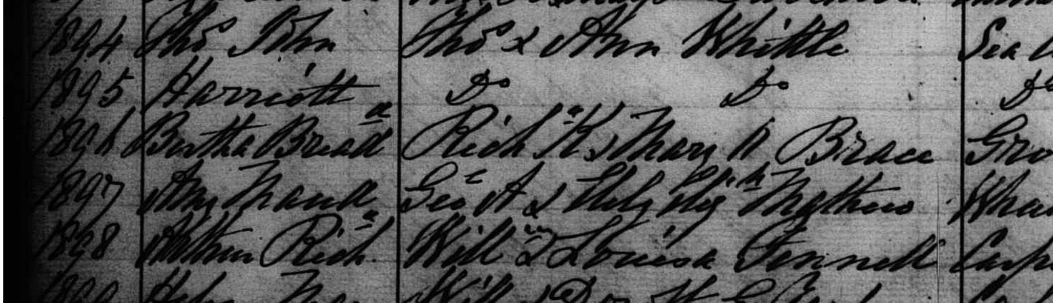 1894 Thos John Thos & Ann Whittle Sea
1895 Harriott Do Do Do
1896 Bertha Richd K & Mary A Brace Gro
1897 Amy Maud Geo A & Mathews Wha
1898 Arthur Richd Willm & Louisa Fennell Carp
Will &